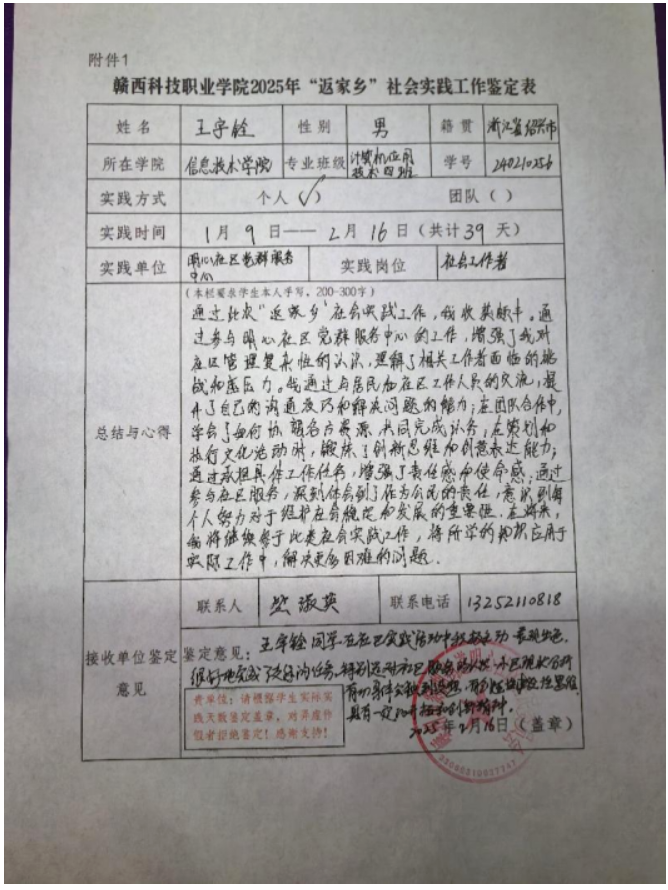 附件1
赣西科技职业学院2025年“返家乡”社会实践工作鉴定表
姓名 王宇铨 性别 男 籍贯 浙江省绍兴市
所在学院 信息技术学院 专业班级 计算机应用技术四班 学号 240210256
实践方式 个人(√) 团队( )
实践时间 1月9日——2月16日(共计39天)
实践单位 明心社区党群服务中心 实践岗位 社会工作者
(本栏要求学生本人手写,200-300字)
通过此次“返家乡”社会实践工作,我收获颇丰。通
过参与明心社区党群服务中心的工作,增强了我对
社区管理复杂性的认识,理解了相关工作者面临的挑
战和压力。我通过与居民和社区工作人员的交流,提
升了自己的沟通技巧和解决问题的能力;在团队合作中,
学会了如何协调各方资源,共同完成任务;在策划和
执行文化活动时,锻炼了创新思维和创意表达能力;
总结与心得
通过承担具体工作任务,增强了责任感和使命感;通过
参与社区服务,深刻体会到了作为公民的责任,意识到每
个人努力对于维护社会稳定和发展的重要性。在将来,
我将继续参于此类社会实践工作,将所学的知识应用于
实际工作中,解决更多困难的问题.
联系人 淑英 联系电话 13252110818
接收单位鉴定意见
鉴定意见:王宇铨同学在社区实践活动中积极主动 表现出色.
很好地完成了交办的任务.特别是对社区
具有一定的 和创新精神.
贵单位:请根据学生实际实
践天数鉴定盖章,对弄虚作
假者拒绝鉴定!感谢支持!
2025年2月16日(盖章)